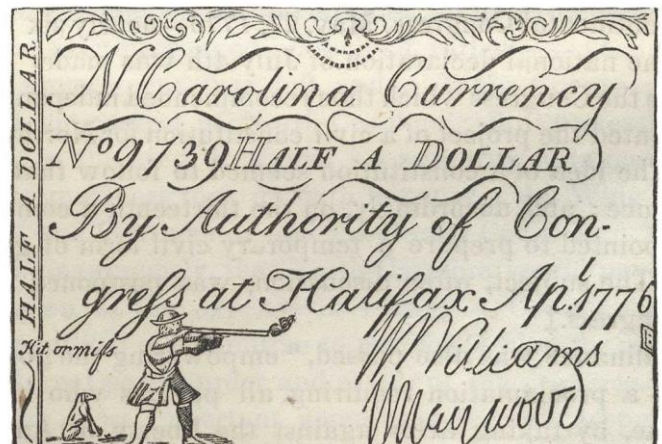 HALF A DOLLAR
N Carolina Currency
No 9739 HALF A DOLLAR
By Authority of Con-
gress at Halifax Apl. 1776
Hit or miss
W Williams
Maywood